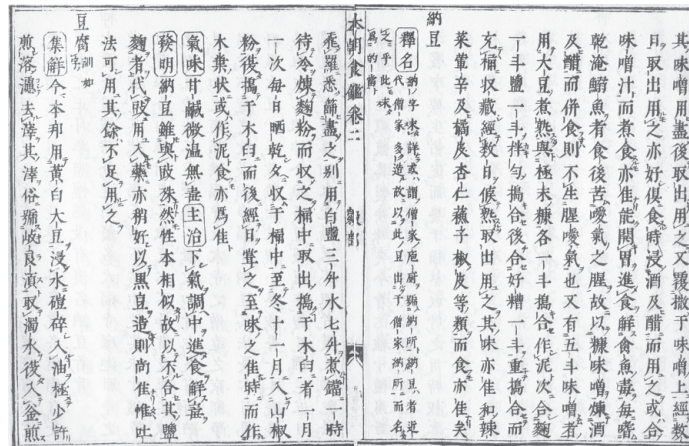 其味噌用盡後取出用之又覆撒于味噌上經數
日取出用之亦好俱食時浸酒及醋而用之或合
味噌汁而煮食亦佳能開胃進食解食魚毒每嗜
乾淹鰭魚者食後苦噯氣之腥故以糠味噌煉酒
及醋而併食則不生腥噯氣也又有五斗味噌者
用大豆煮熟與極末糠各一斗搗合作泥次合麴
一斗鹽一斗拌勻搗合後合好糟一斗重搗合而
充桶収藏經數日候熟取出用之其味亦佳和辣
菜葷辛及橘皮杏仁蘓子椒皮等類而食亦佳矣
納豆
釋名 納字味詳或謂僧家庖厨縣納所納豆者近代僧家多造故以此豆出于僧家納所而名之乎此味爲的當
本朝食鑑卷二 穀部
乘羅悉篩盡之别用白鹽三升水七升煮鐺一時
待冷煉麴粉而収之桶中取出搗于木臼者一月
一次每日晒乾夕収于桶中至冬十一月入山椒
粉後搗于木臼而後經日耷之至味之佳時而作
木葉狀或作泥食亦爲佳
氣味 甘鹹微温無毒 主治 下氣調中進食解毒
發明 納豆雖與豉殊然性本相似故以不合其鹽
麴者代豉用入藥亦稍好以黑豆造則尚佳惟吐
法可用其餘不足用之
豆腐 訓如字
集解 今本邦用黄白大豆浸水磑碎入油極少許
煎落濾去滓其滓俗號岐良須取濁水後入釜煎